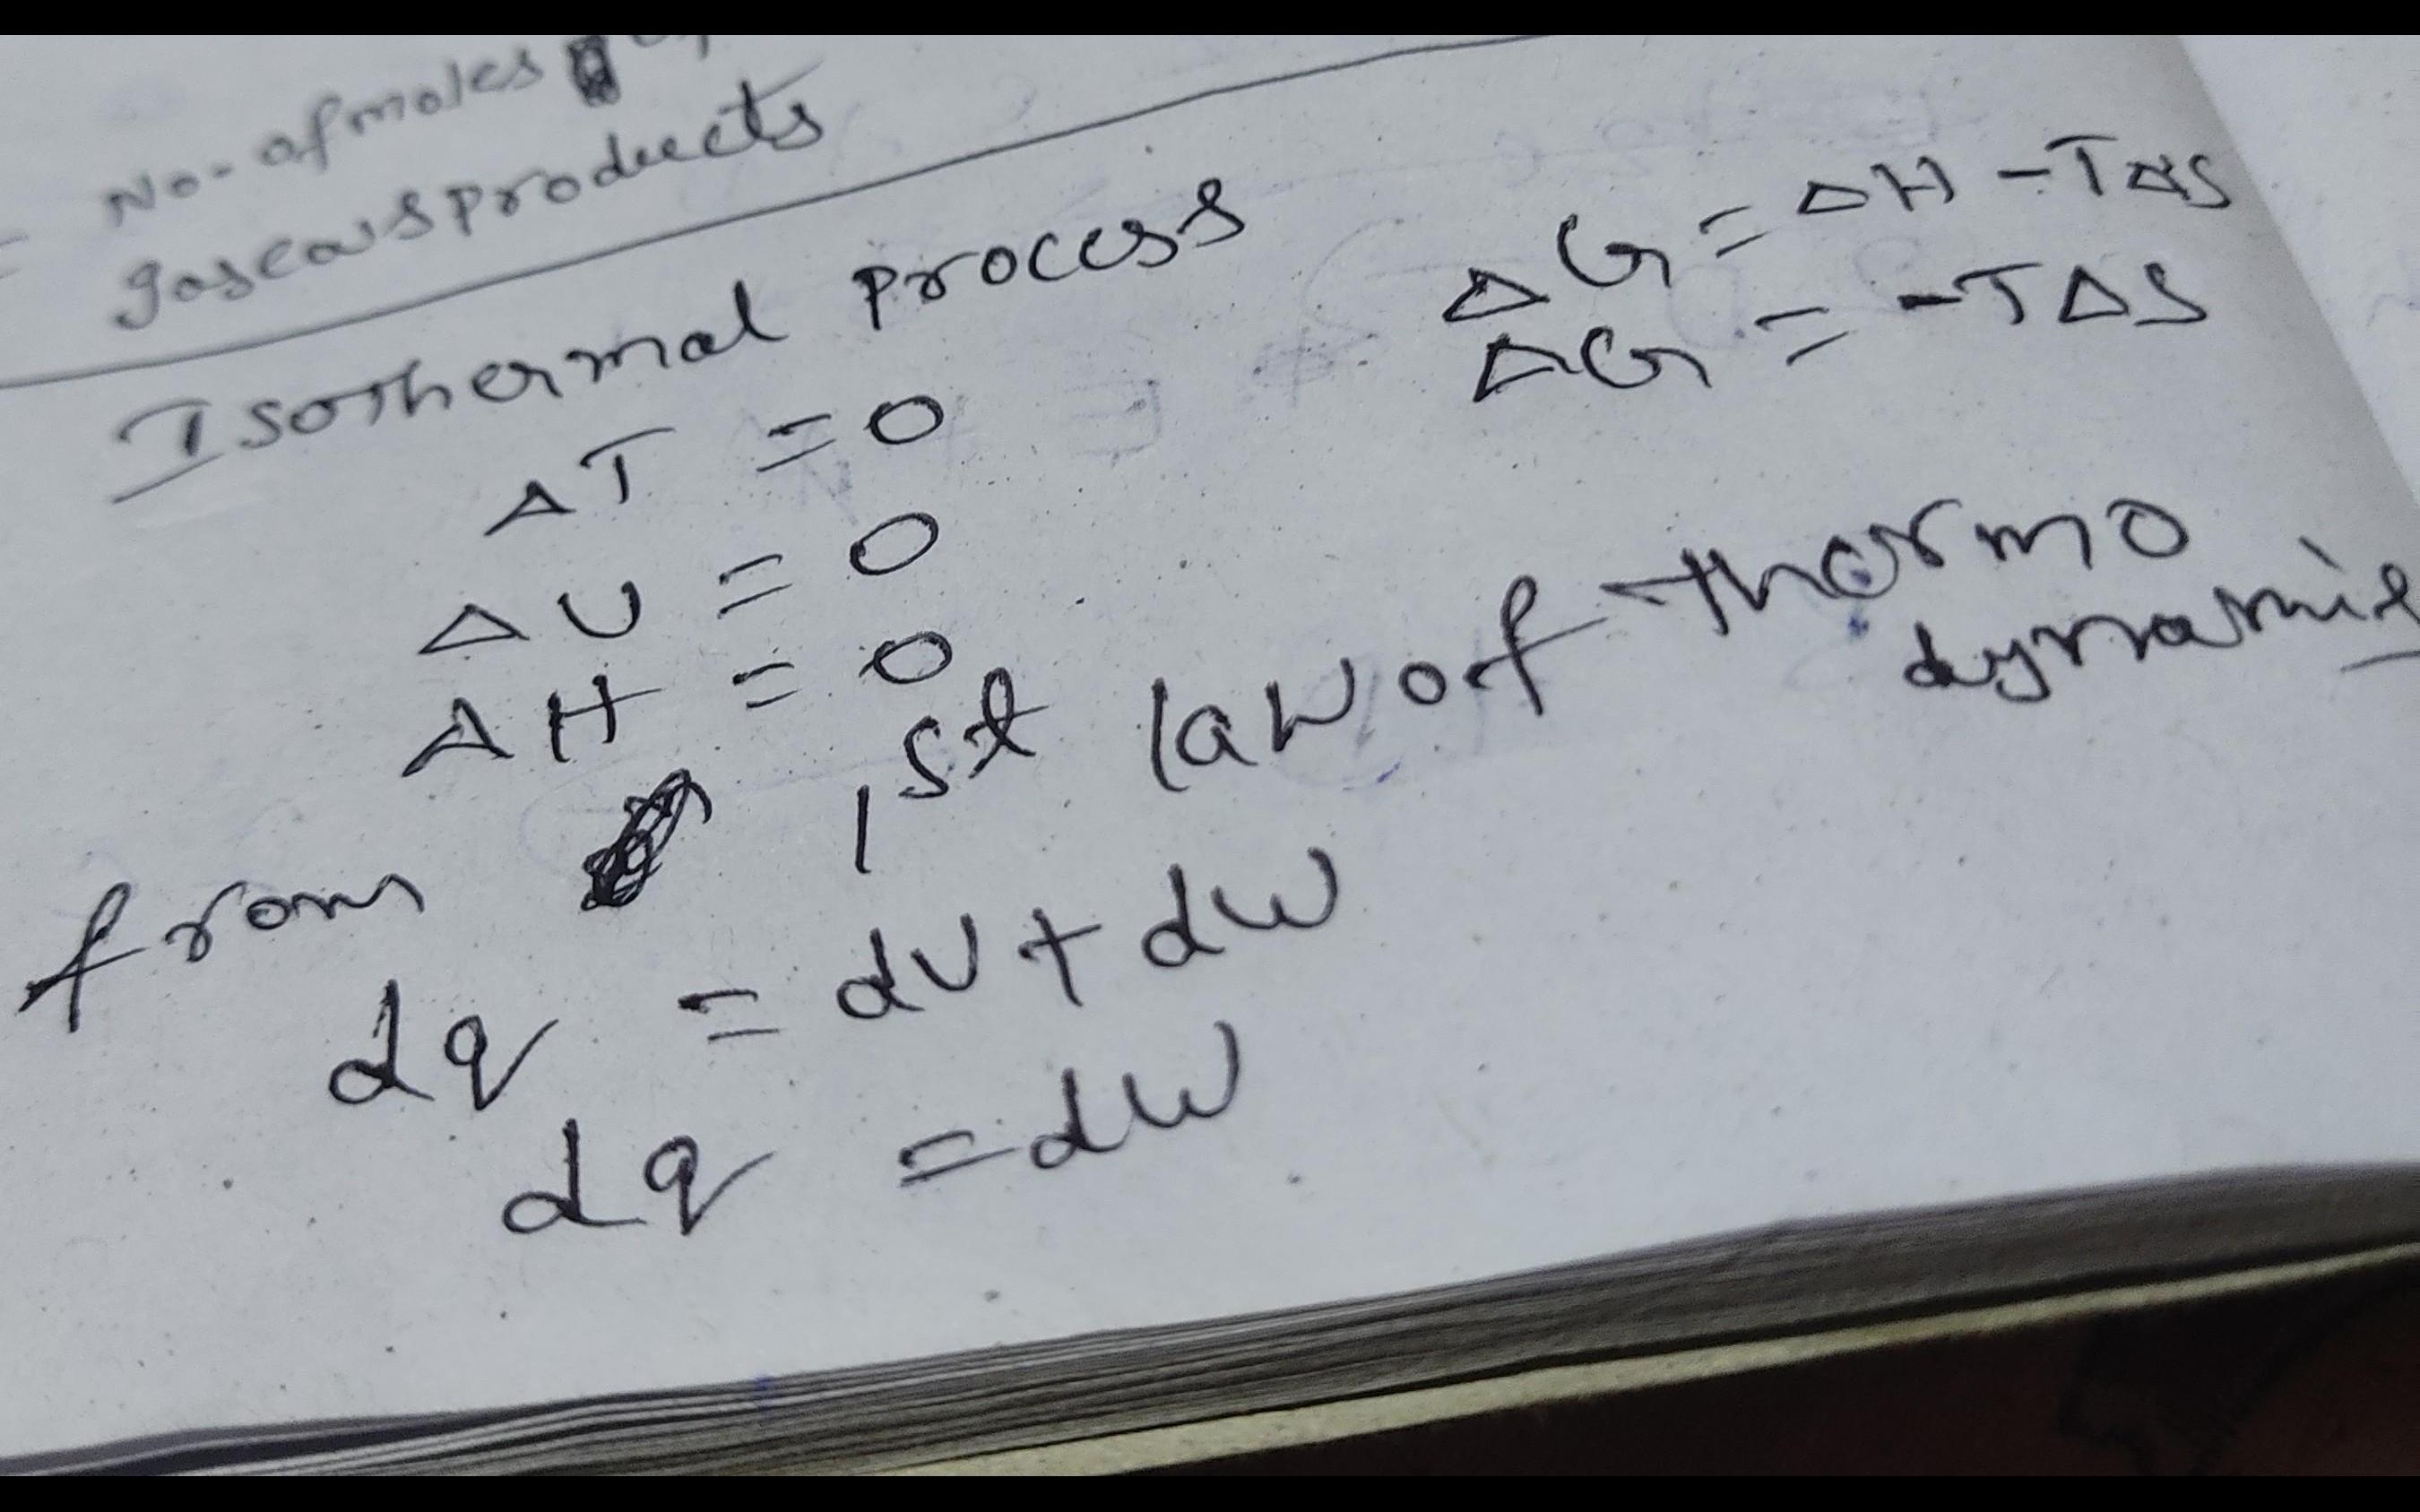 No. of moles
gaseous products
Isothermal process
ΔT = 0
ΔU = 0
ΔH = 0
ΔG = ΔH - TΔS
ΔG = -TΔS
from 1st law of thermo
dynamic
dq = dU + dW
dq = dW